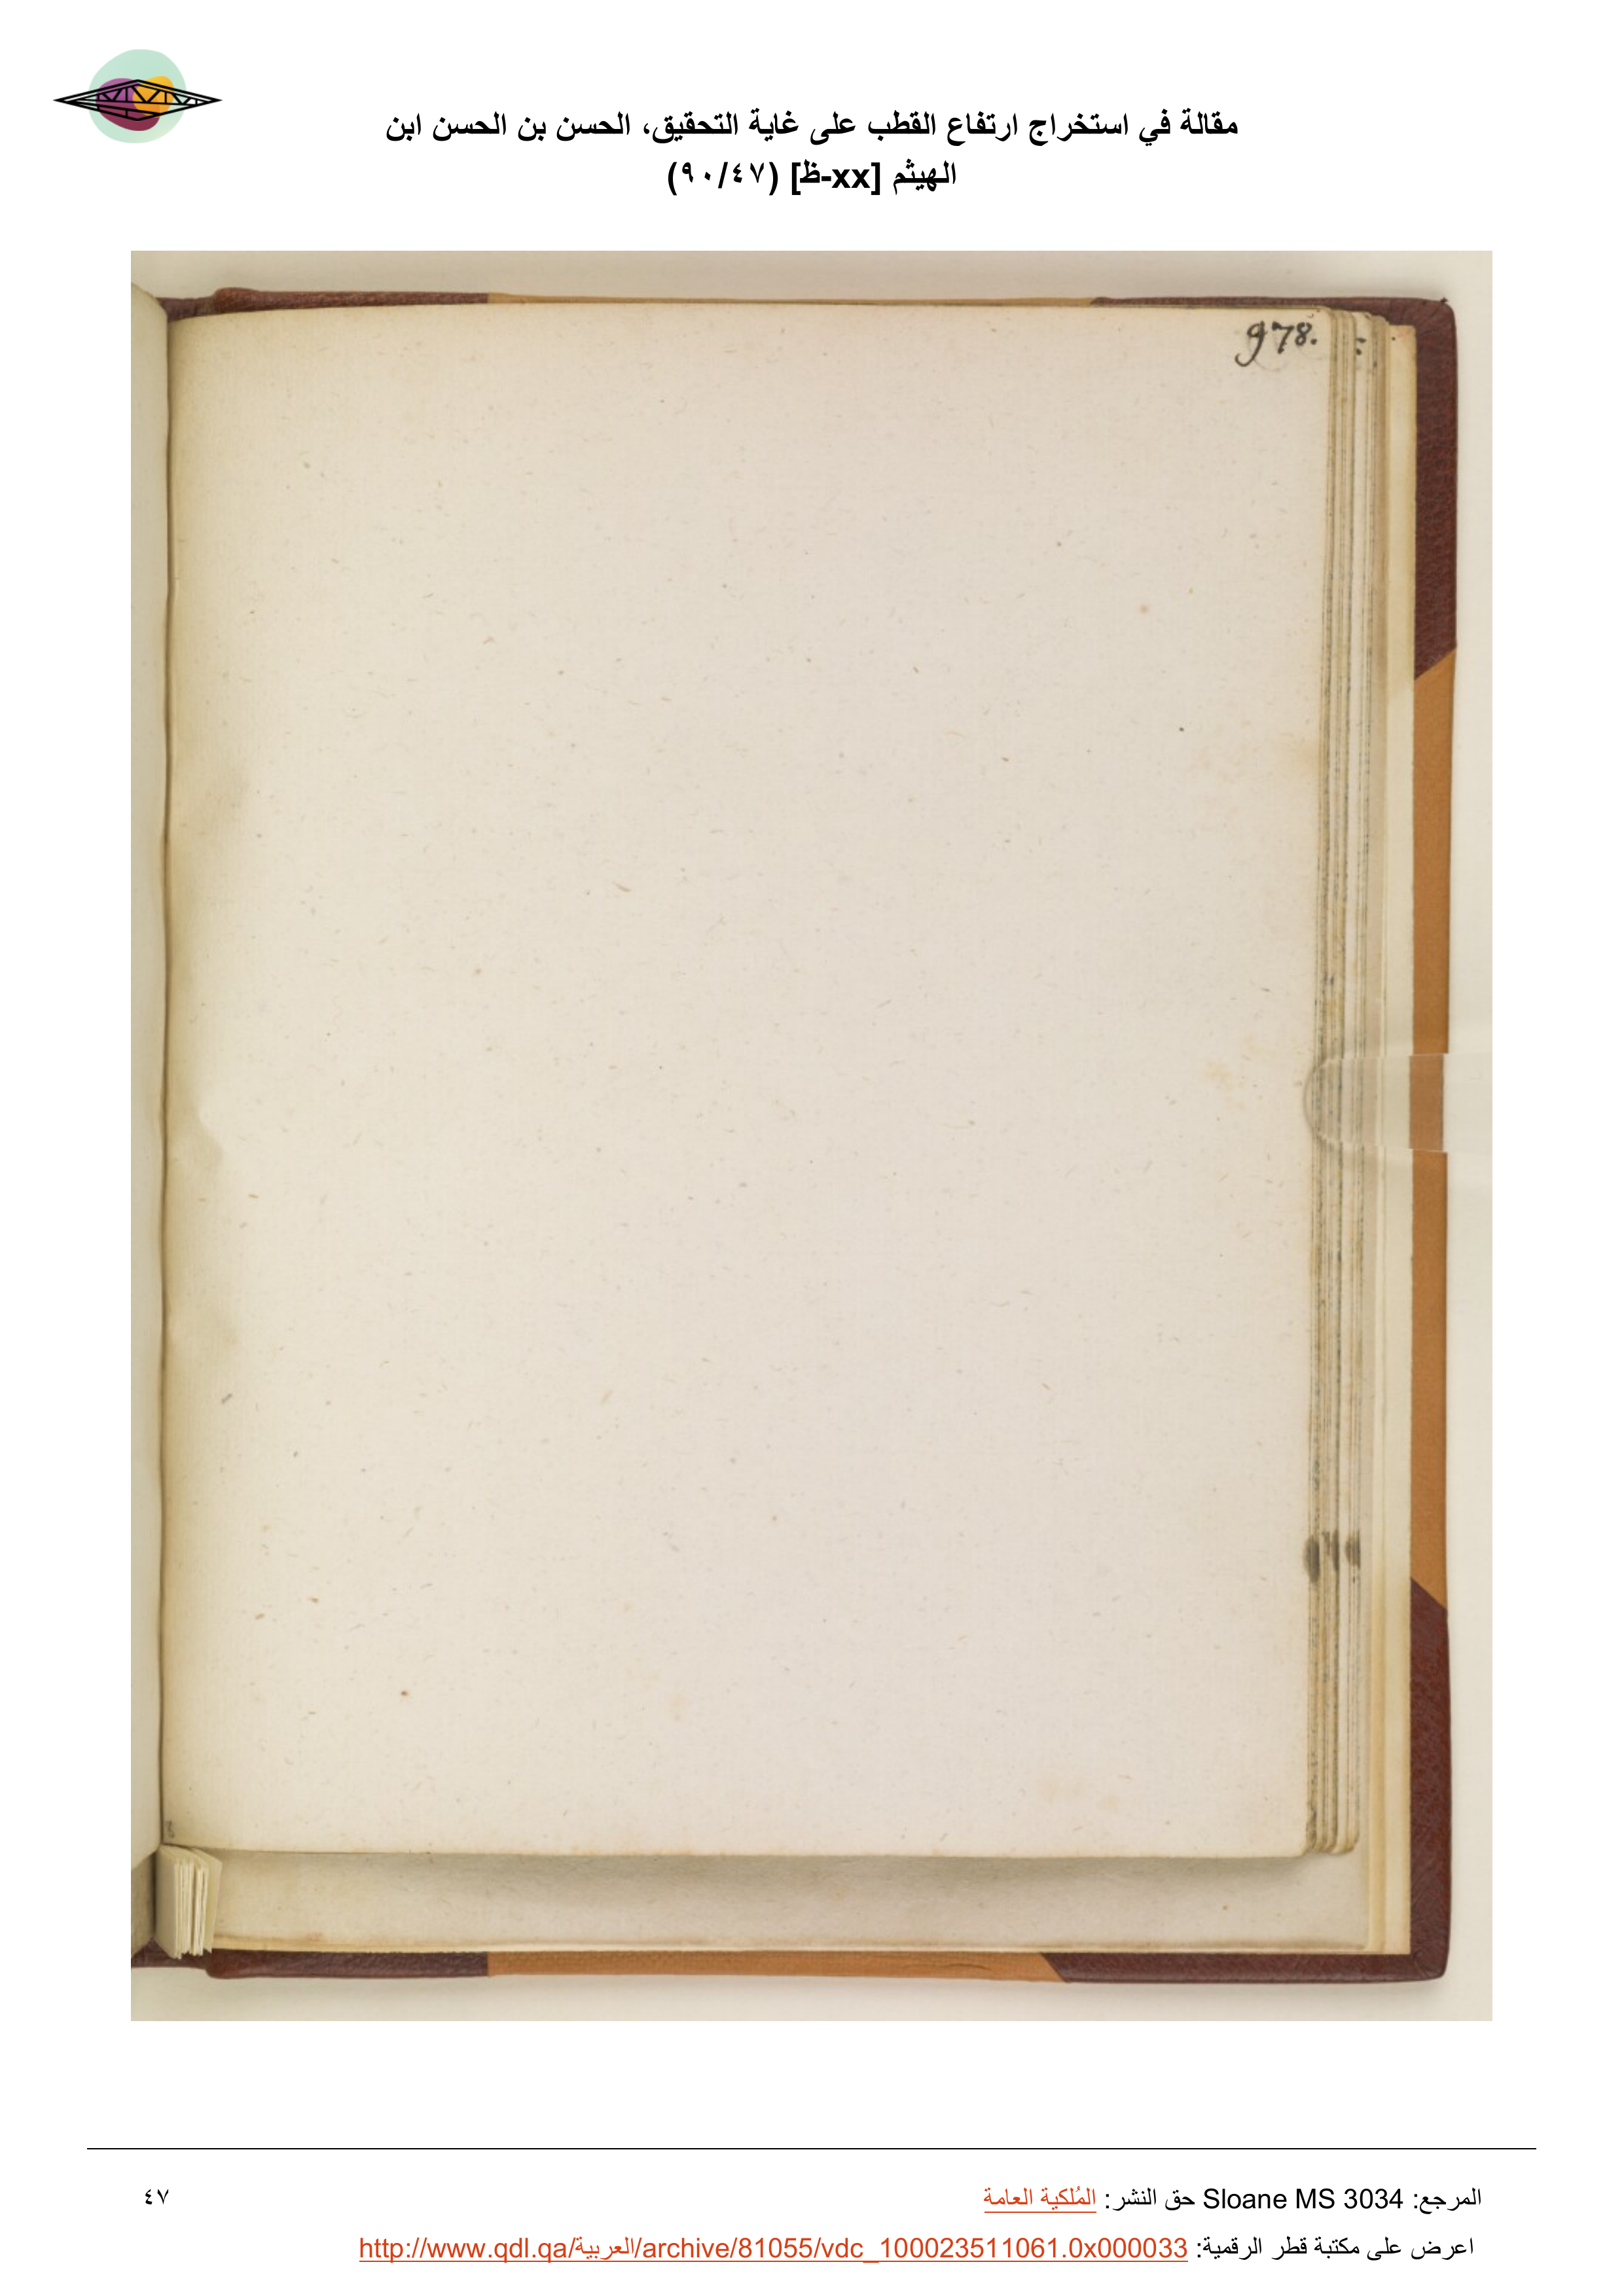 مقالة في استخراج ارتفاع القطب على غاية التحقيق، الحسن بن الحسن ابن
الهيثم [xx-ظ] (٩٠/٤٧)
978.
المرجع: Sloane MS 3034 حق النشر: المُلكية العامة
٤٧
اعرض على مكتبة قطر الرقمية: http://www.qdl.qa/العربية/archive/81055/vdc_100023511061.0x000033